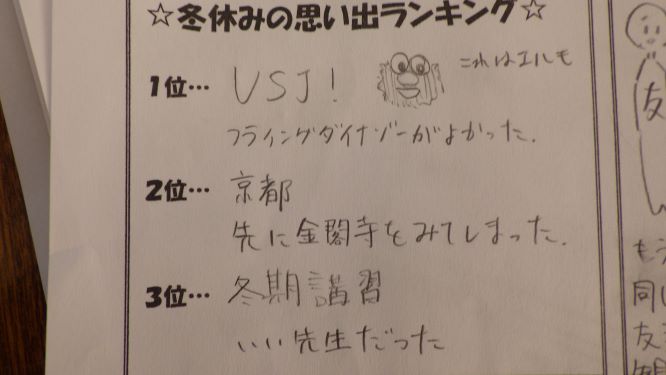 ☆冬休みの思い出ランキング☆
1位… USJ! これはエルモ
フライングダイナソーがよかった.
2位… 京都
先に金閣寺をみてしまった.
3位… 冬期講習
いい先生だった
友
もう
同じ
友